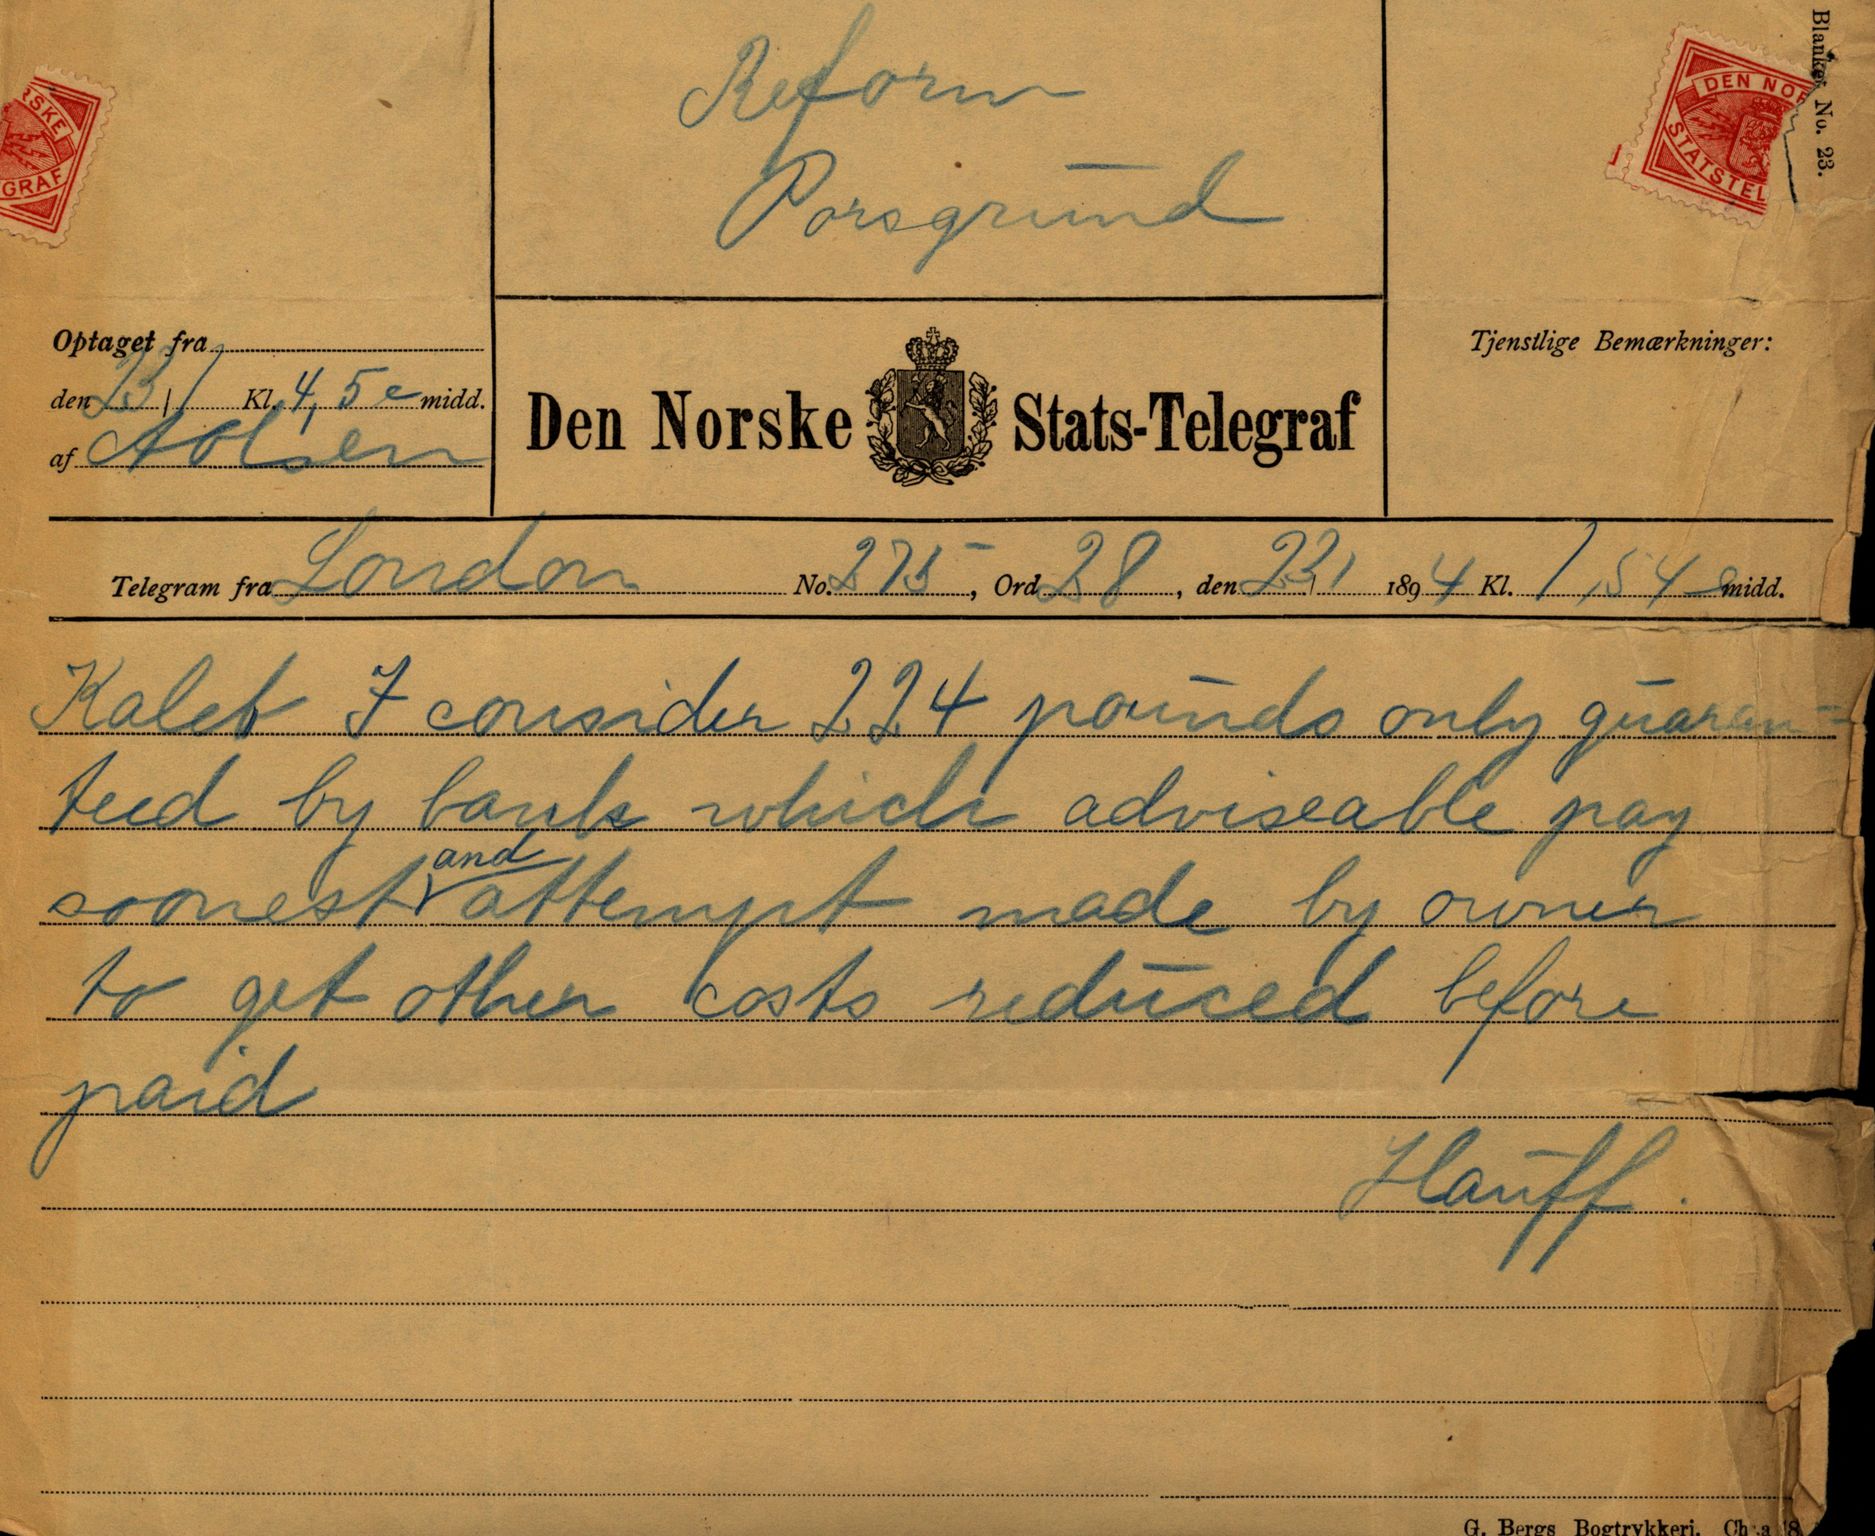 Reform
Porsgrund
RSKE
GRAF
DEN NOR
STATSTEL
Blanket No. 23.
Optaget fra
den 23/1 Kl. 4,5 e midd.
af AOlsen
Den Norske Stats-Telegraf
Tjenstlige Bemærkninger:
Telegram fra London No. 275, Ord 28, den 23/1 1894 Kl. 1,54 e midd.
Kaleb I consider 224 pounds only guaran-
teed by bank which adviseable pay
soonest and attempt made by owner
to get other costs reduced before
paid
Hauff.
G. Bergs Bogtrykkeri.